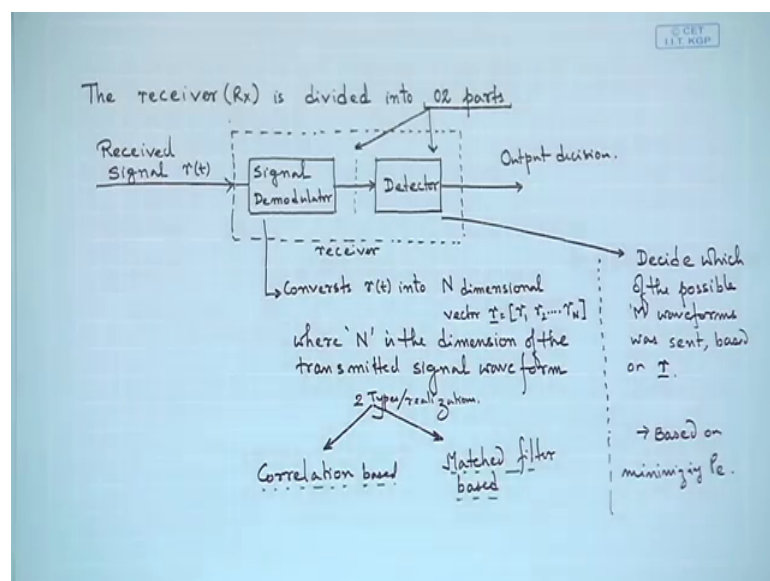 © CET
I.I.T. KGP
The receiver (Rx) is divided into 02 parts
Received
Signal r(t)
Signal
Demodulator
Detector
Output decision.
receiver
Conversts r(t) into N dimensional
vector r = [r1 r2 .... rN]
where 'N' is the dimension of the
transmitted signal waveform
2 Types/realizations.
Correlation based
Matched filter
based
Decide which
of the possible
'M' waveforms
was sent, based
on r.
→ Based on
minimizing Pe.